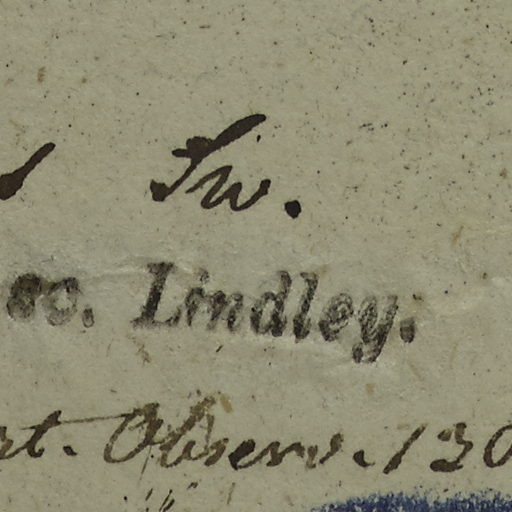 Sw.
so. Lindley.
rt. Observ. 130